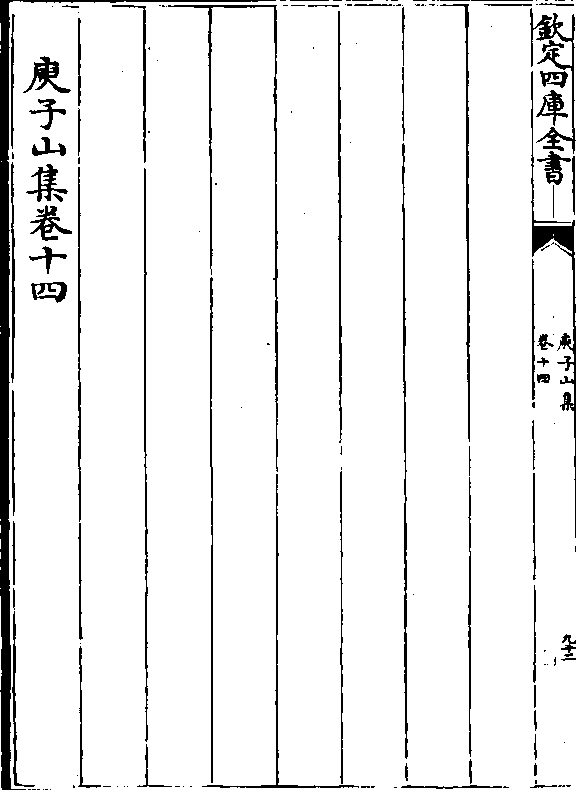 欽定四庫全書
庾子山集
卷十四
九十二
庾子山集卷十四